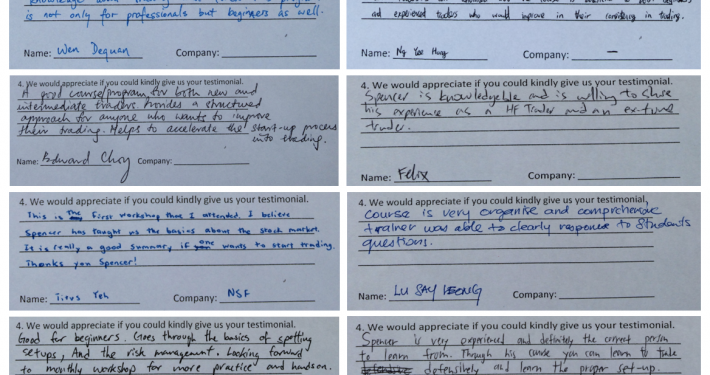 is not only for professionals but beginners as well.
Name: Wen Dequan Company:
4. We would appreciate if you could kindly give us your testimonial.
A good course/program for both new and
intermediate traders Provides a structured
approach for anyone who wants to improve
their trading. Helps to accelerate the start-up process
into trading.
Name: Edward Choy Company:
4. We would appreciate if you could kindly give us your testimonial.
This is the first workshop that I attended. I believe
Spencer has taught us the basics about the stock market.
It is really a good summary if one wants to start trading.
Thanks you Spencer!
Name: Titus Yeh Company: NSF
4. We would appreciate if you could kindly give us your testimonial.
Good for beginners. Goes through the basics of spotting
setups, And the risk management. Looking forward
to monthly workshop for more practice and handson.
and experienced traders who would improve in their consistency in trading.
Name: Ng Yao Hung Company: —
4. We would appreciate if you could kindly give us your testimonial.
Spencer is knowledgeble and is willing to share
his experience as a HF Trader and an ex-fund
trader.
Name: Felix Company:
4. We would appreciate if you could kindly give us your testimonial,
Course is very organise and comprehensive
trainer was able to clearly response to students
questions.
Name: LU SAY LEONG Company:
4. We would appreciate if you could kindly give us your testimonial.
Spencer is very experienced and definitely the correct person
to learn from. Through his course you can learn to trade
defensively and learn the proper set-up.